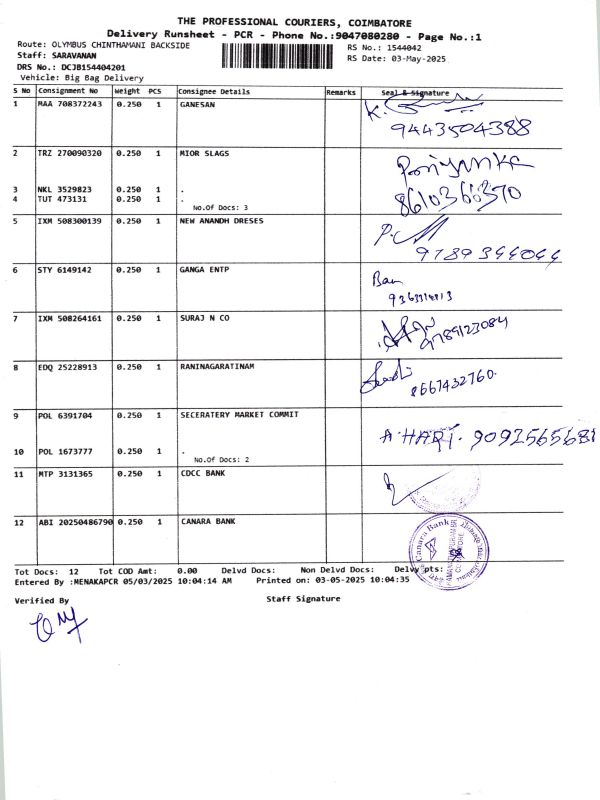 THE PROFESSIONAL COURIERS, COIMBATORE
Delivery Runsheet - PCR - Phone No.:9047080280 - Page No.:1
Route: OLYMBUS CHINTHAMANI BACKSIDE
RS No.: 1544042
Staff: SARAVANAN
RS Date: 03-May-2025
DRS No.: DCJB154404201
Vehicle: Big Bag Delivery
S No Consignment No Weight PCS Consignee Details Remarks Seal & Signature
1 MAA 708372243 0.250 1 GANESAN
9443504388
2 TRZ 270090320 0.250 1 MIOR SLAGS Poriyanka
3 NKL 3529823 0.250 1 .
4 TUT 473131 0.250 1 . 8610366370
No.Of Docs: 3
5 IXM 508300139 0.250 1 NEW ANANDH DRESES
9789344044
6 STY 6149142 0.250 1 GANGA ENTP
7 IXM 508264161 0.250 1 SURAJ N CO 9789123084
8 EDQ 25228913 0.250 1 RANINAGARATINAM
8667432760.
9 POL 6391704 0.250 1 SECERATERY MARKET COMMIT
A.HARI. 9092565681
10 POL 1673777 0.250 1 .
No.Of Docs: 2
11 MTP 3131365 0.250 1 CDCC BANK
12 ABI 20250486790 0.250 1 CANARA BANK Canara Bank
Tot Docs: 12 Tot COD Amt: 0.00 Delvd Docs: Non Delvd Docs: Delvy pts:
Entered By :MENAKAPCR 05/03/2025 10:04:14 AM Printed on: 03-05-2025 10:04:35
Verified By Staff Signature